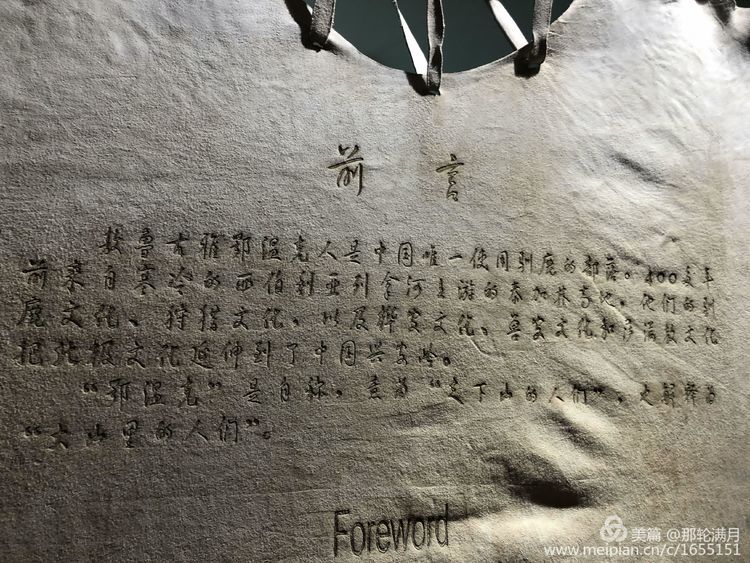 前言
敖鲁古雅鄂温克人是中国唯一使用驯鹿的部落。400多年
前来自寒冷的西伯利亚列拿河上游的泰加林高地。他们的驯
鹿文化、狩猎文化、以及桦皮文化、兽皮文化和萨满教文化
把北极文化延伸到了中国兴安岭。
“鄂温克”是自称，意为“走下山的人们”，又解释为
“大山里的人们”。
Foreword
美篇 @那轮满月
www.meipian.cn/c/1655151